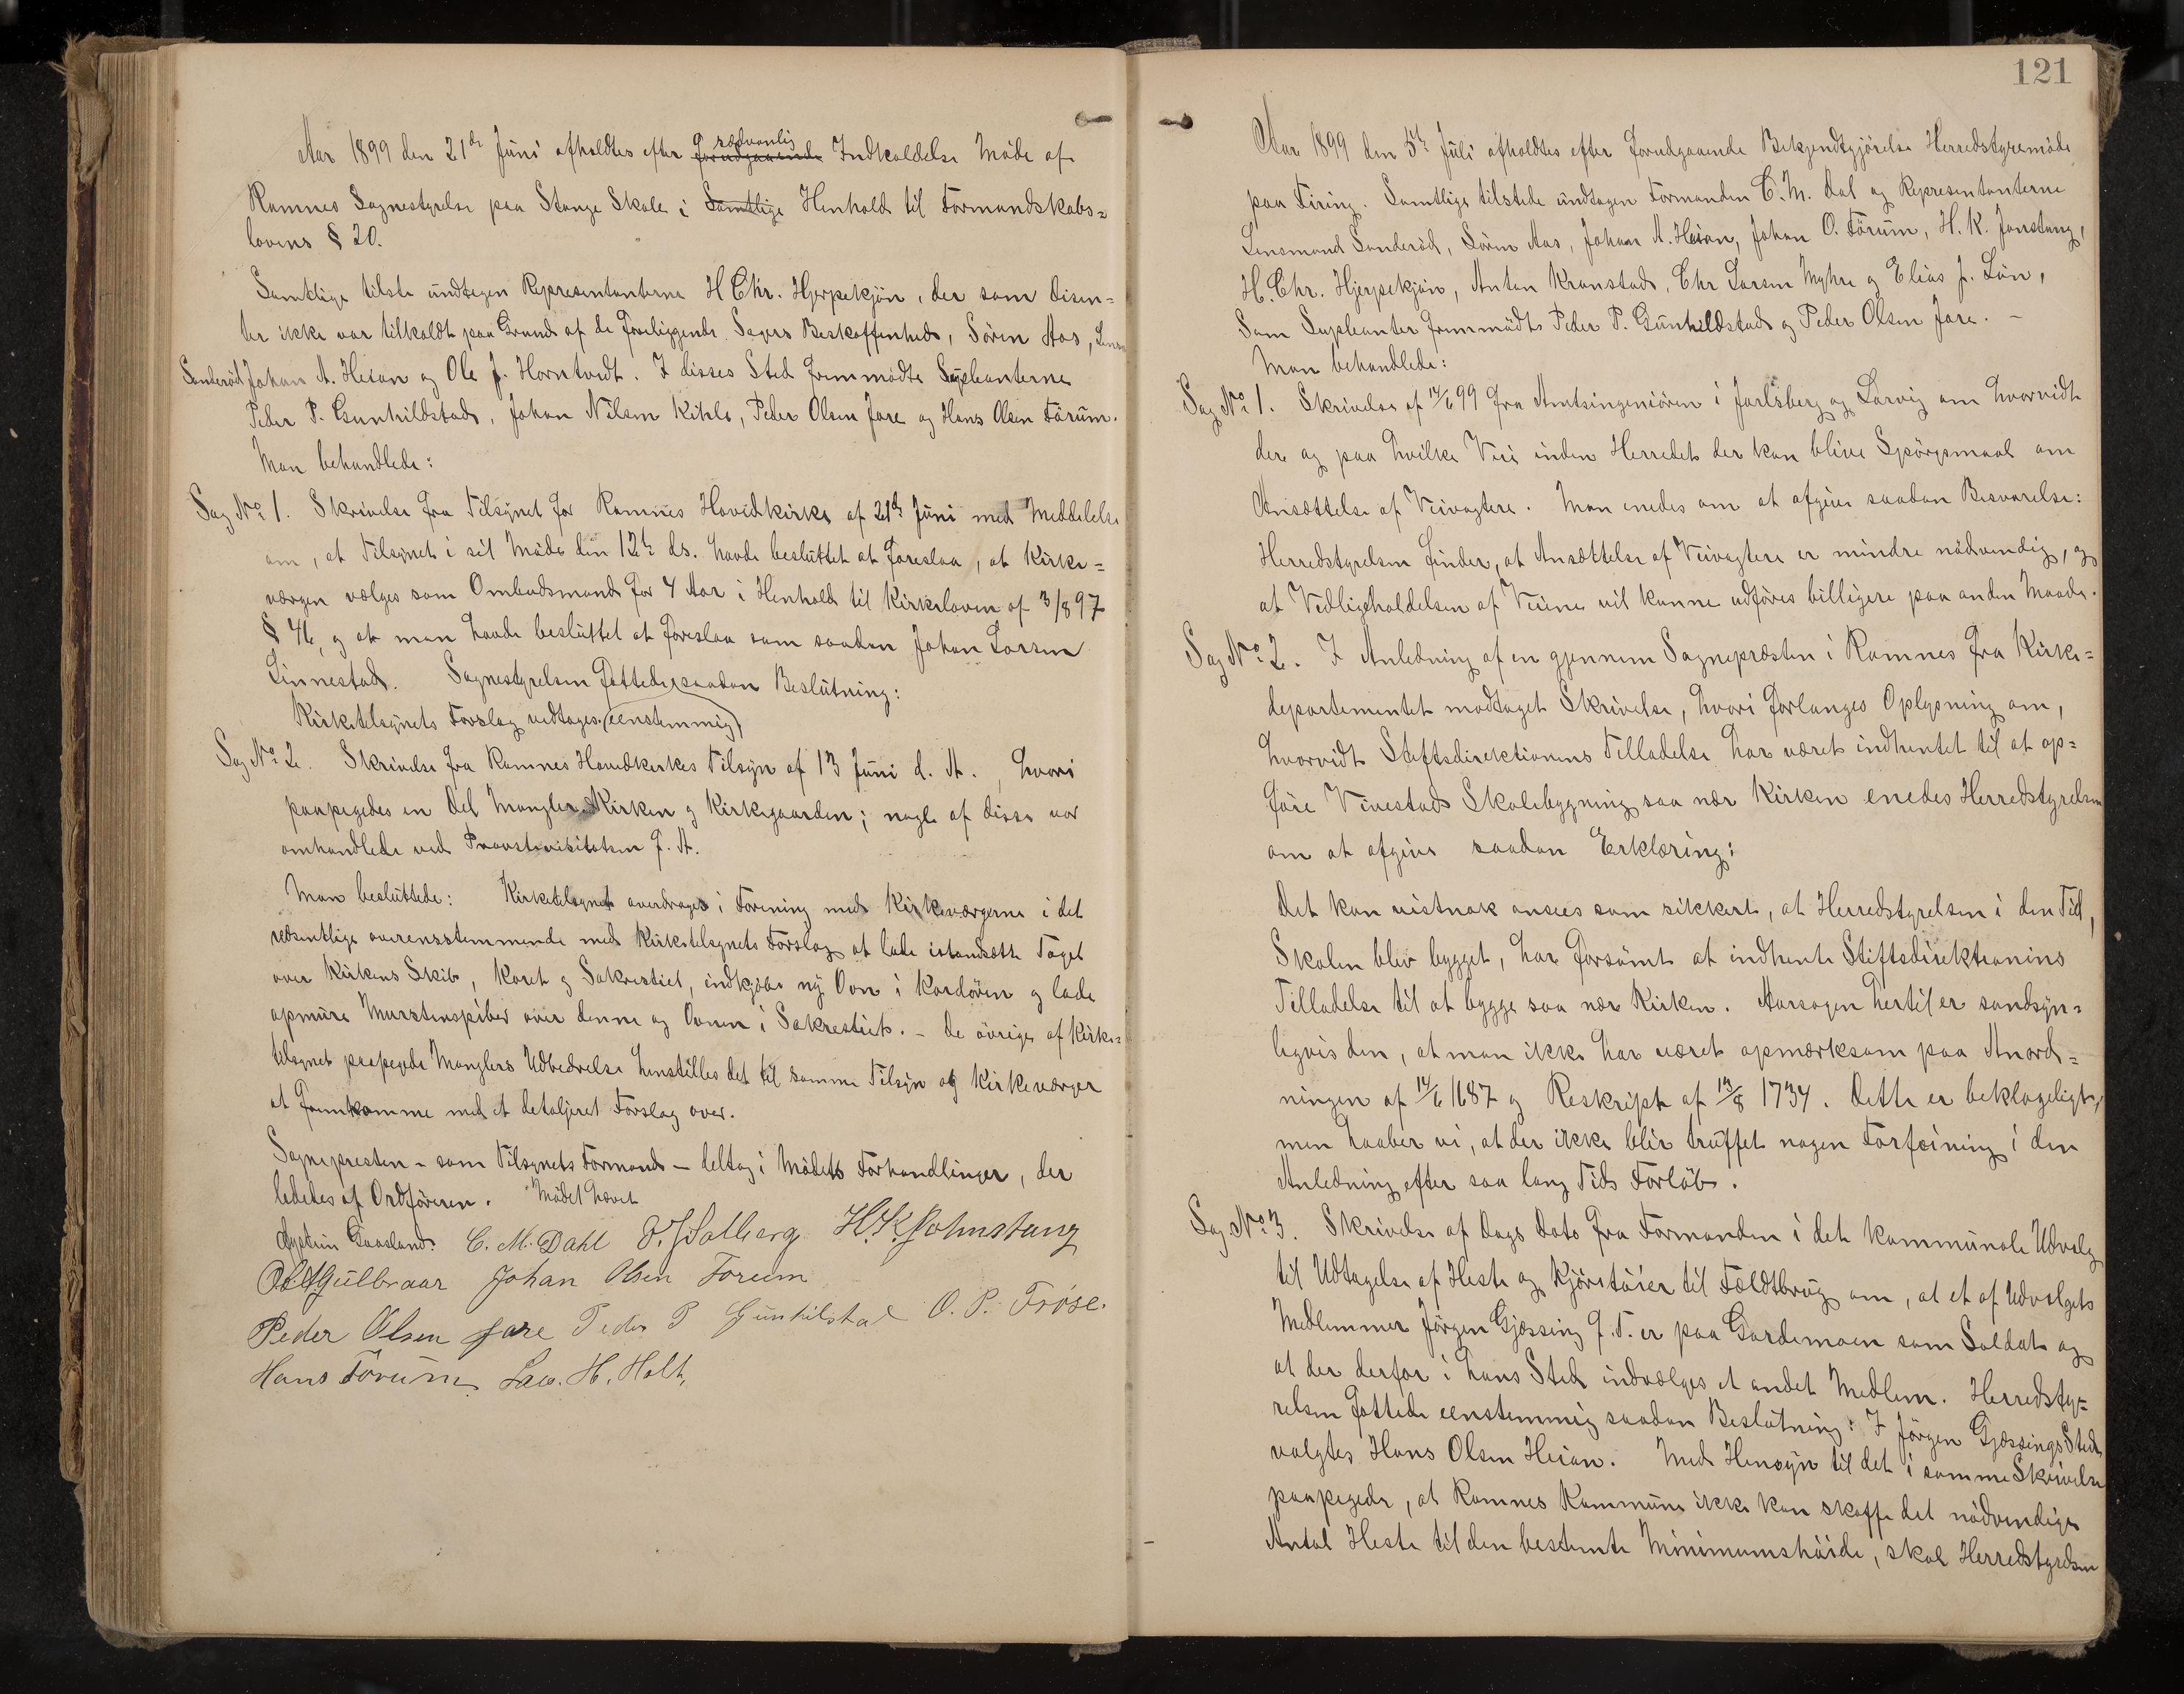 Aar 1899 den 21de Juni afholdtes efter forudgaaende sædvanlig Indkaldelse Møde af
Ramnes Sognestyrelse paa Stange Skole i Samtlige Henhold til Formandskabs=
lovens § 20.
Samtlige tilste undtagen Repræsentanterne H Chr. Hjerpekjön, der som Disen=
ter ikke var tilkaldt paa Grund af de foreliggende Sagers Beskaffenhed, Sören Aas, Lensm
Sanderöd Johan A. Heian og Ole J. Horntvedt. I disses Sted fremmödte Supleanterne
Peder P. Gunhildstad, Johan Nilsen Kihle, Peder Olsen Jare og Hans Olsen Förum.
Man behandlede:
Sag No 1. Skrivelse fra Tilsynet for Ramnes Hovedkirke af 21de Juni med Meddelelse
om, at Tilsynet i sit Möde den 12te ds. havde besluttet at foreslaa, at Kirke=
værgen vælges som Ombudsmand for 4 Aar i Henhold til Kirkeloven af 3/8 97
§ 46, og at man havde besluttet at foreslaa som saadan Johan Larsen
Linnestad. Sognestyrelsen fattede saadan Beslutning:
Kirketilsynets Forslag vedtages. (eenstemmig)
Sag No 2. Skrivelse fra Ramnes Hovedkirkes Tilsyn af 13 Juni d. A., hvori
paapegedes en Del Mangler Kirken og Kirkegaarden; nogle af disse var
omhandlede ved Provstevisitatsen f. A.
Man besluttede: Kirketilsynet overdrages i Forening med Kirkeværgerne i det
væsentlige overensstemmende med Kirketilsynets Forslag at lade istandsætte Taget
over Kirkens Skib, Koret og Sakrestiet, indkjöbe ny Ovn i Kordören og lade
opmure Murstenspiber over denne og Ovnen i Sakrestiet. – De övrige af Kirke=
tilsynet paapegede Manglers Udbedrelse henstilles det til samme Tilsyn og Kirkeværger
at fremkomme med et detaljeret Forslag over.
Sognepresten – som Tilsynets Formand – deltog i Mödets Forhandlinger, der
lededes af Ordföreren. Mödet hævet
Gaasland. C. M. Dahl Solberg H. K. Johnstang
Gulbraar Johan Olsen Forum
Peder Olsen Jare Peder P Gunhilstad O. P. Fröse.
Hans Förum. Law. H. Holt.
121
Aar 1899 den 5te Juli afholdtes efter forudgaaende Bekjendtgjörelse Herredstyremöde
paa Firing. Samtlige tilstede undtagen Formanden C. M. Dal og Repræsentanterne
Lensmand Sanderöd, Sörin Aas, Johan A. Heian, Johan O. Förum, H. K. Jonstang,
H. Chr. Hjerpekjön, Anton Kronstad, Chr Larsen Myhre og Elias J. Lön,
Som Supleanter fremmödte Peder P. Gunhildstad og Peder Olsen Jare. –
Man behandlede:
Sag No 1. Skrivelse af 14/6 99 fra Amtsingeniören i Jarlsberg og Larvig om hvorvidt
der og paa hvilke Veie inden Herredet der kan blive Spörgsmaal om
Ansættelse af Veivogtere. Man enedes om at afgive saadan Besvarelse:
Herredstyrelsen finder, at Ansættelse af Veivogtere er mindre nödvendig, og
at Vedligeholdelsen af Veiene vil kunne udföres billigere paa anden Maade.
Sag No 2. I Anledning af en gjennem Sognepræsten i Ramnes fra Kirke=
departementet modtaget Skrivelse, hvori forlanges Oplysning om,
hvorvidt Stiftsdirektionens Tilladelse har været indhentet til at op=
före Vivestad Skolebygning saa nær Kirken enedes Herredstyrelsen
om at afgive saadan Erklæring:
Det kan vistnok ansees som sikkert, at Herredstyrelsen i den Tid,
Skolen blev bygget, har forsömt at indhente Stiftsdirektionens
Tilladelse til at bygge saa nær Kirken. Aarsagen hertil er sandsyn=
ligvis den, at man ikke har været opmærksom paa Anord=
ningen af 14/6 1687 og Reskript af 13/8 1734. Dette er beklageligt,
men haaber vi, at der ikke blir truffet nogen Forföining i den
Anledning efter saa lang Tids Forlöb.
Sag No 3. Skrivelse af Dags Dato fra Formanden i det kommunale Udvalg
til Udtagelse af Heste og Kjöretöier til Fældtbrug om, at et af Udvalgets
Medlemmer Jörgen Gjæssing f. T. er paa Gardemoen som Soldat og
at der derfor i hans Sted indvælges et andet Medlem. Herredsty=
relsen fattede eenstemmig saadan Beslutning: I Jörgen Gjæssings Sted
valgtes Hans Olsen Heian. Med Hensyn til det i samme Skrivelse
paapegede, at Ramnes Kommune ikke kan skaffe det nödvendige
Antal Heste til den bestemte Minimumshöide, skal Herredstyrelsen